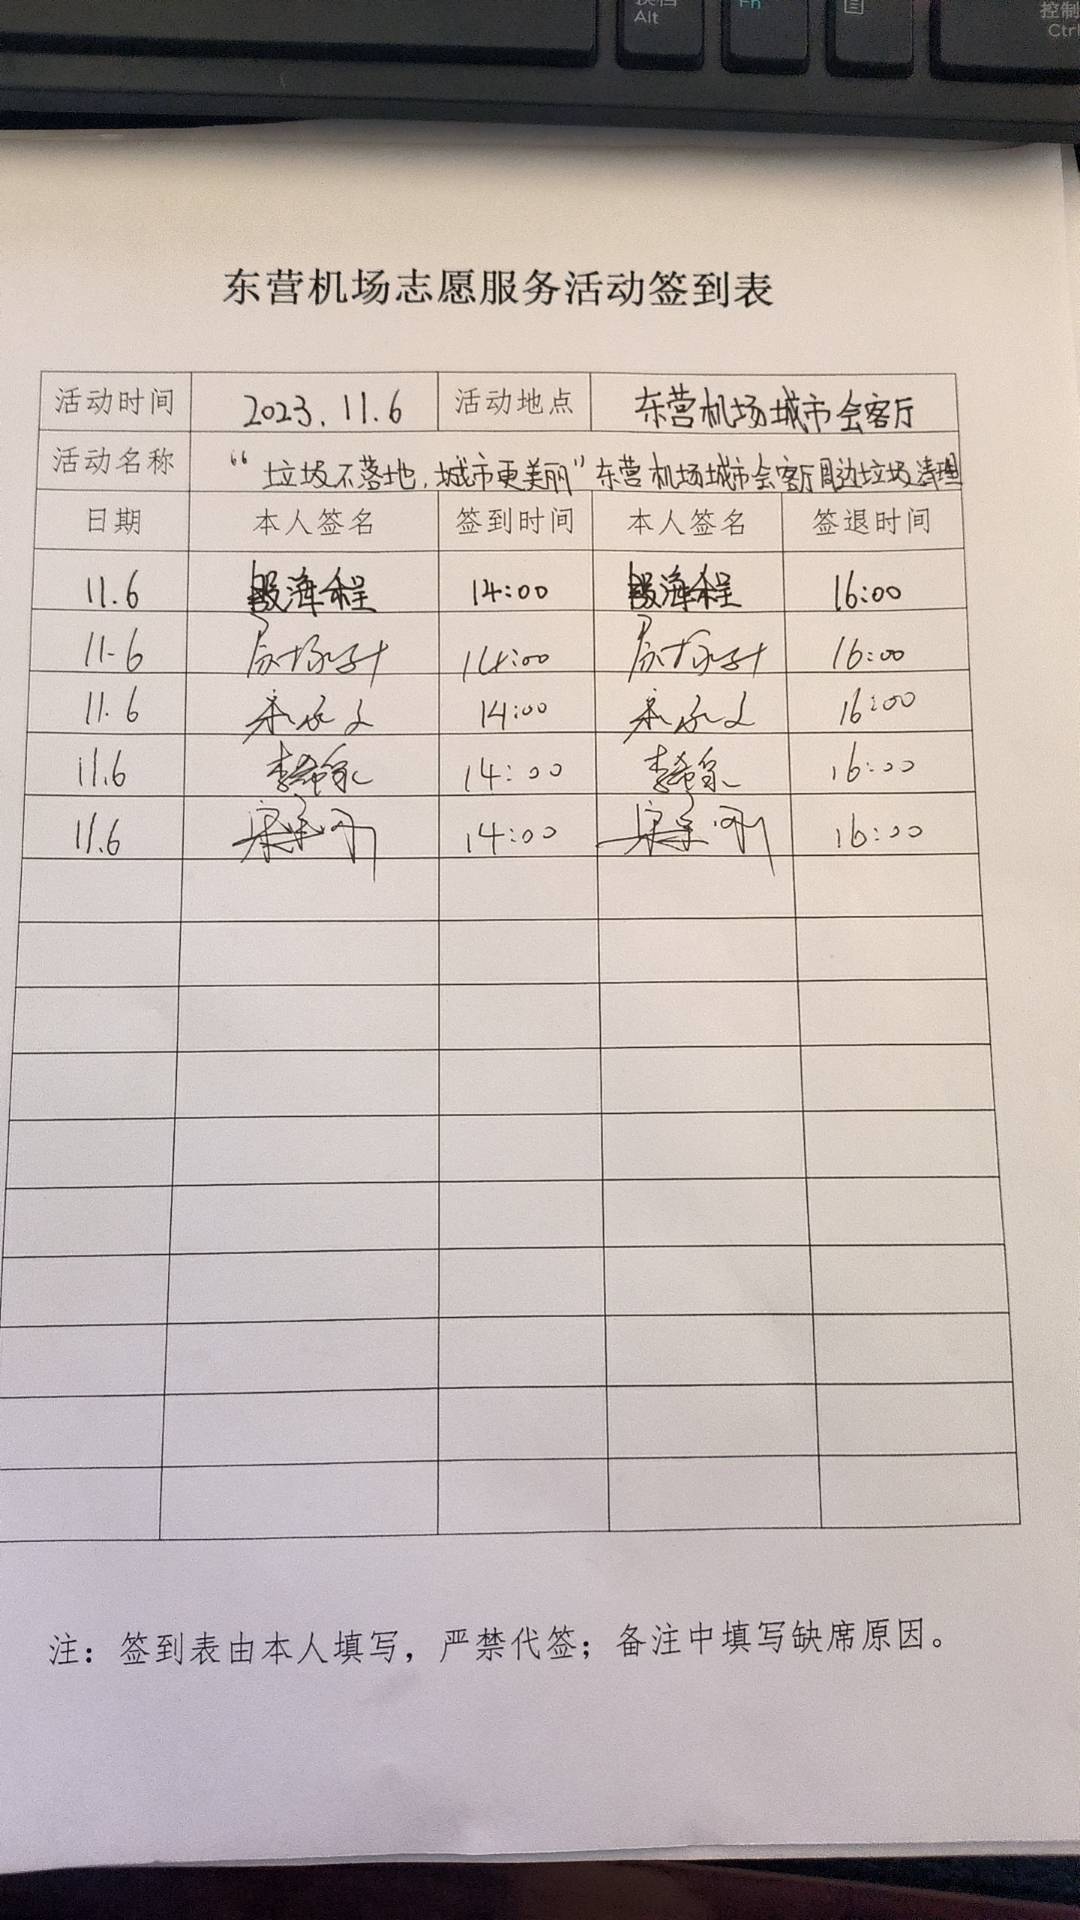 换档
Alt
Fn
控制
Ctrl
东营机场志愿服务活动签到表
活动时间 2023.11.6 活动地点 东营机场城市会客厅
活动名称 “垃圾不落地，城市更美丽”东营机场城市会客厅周边垃圾清理
日期 本人签名 签到时间 本人签名 签退时间
11.6 段海程 14:00 段海程 16:00
11.6 14:00 16:00
11.6 14:00 16:00
11.6 14:00 16:00
11.6 14:00 16:00
注：签到表由本人填写，严禁代签；备注中填写缺席原因。